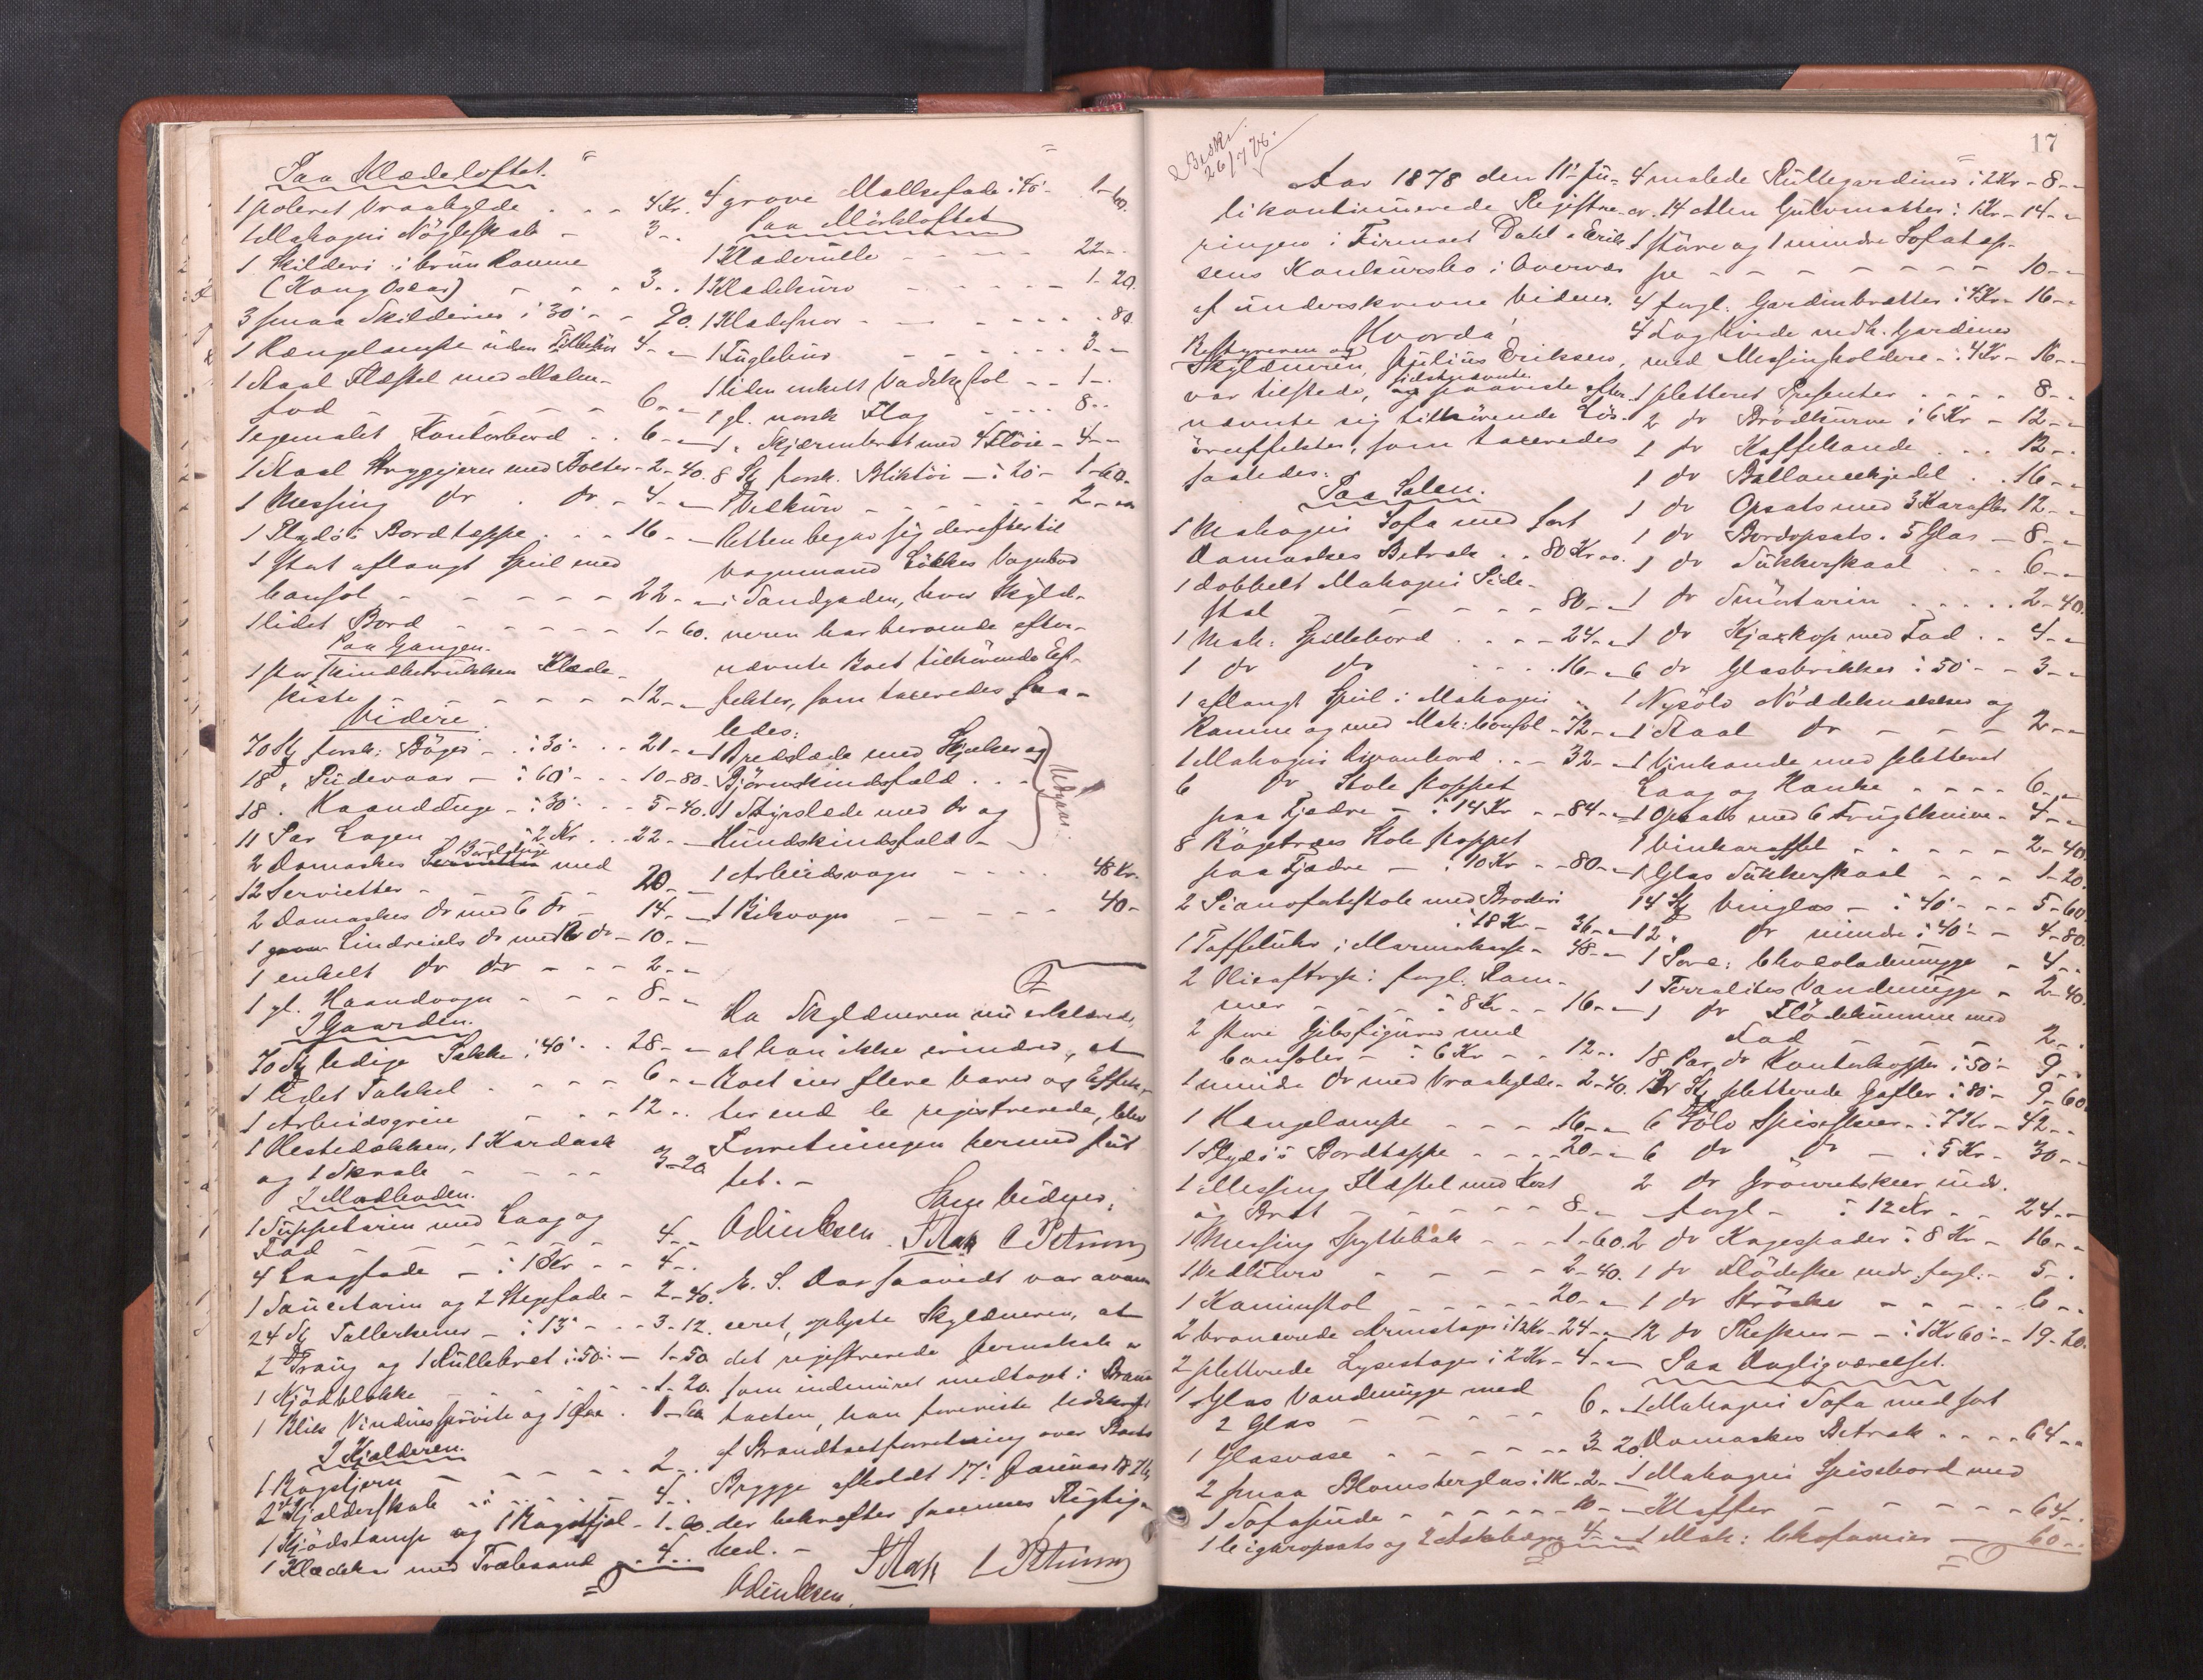 Paa Klædeloftet.
1 poleret Vraahylde - - - 4 Kr.
1 Mahogni Nögleskab - 3 - -
1 Skilderi i brun Ramme
(Kong Oscar) - - - 3 - -
3 smaa Skilderier i 30 - - 90.
1 Hængelampe uden Tilbehör 4 - -
1 Staal Ildstel med Malm-
fod - - - - - 6 - -
1 egemalet Kontorbord - - 6 - -
1 Staal Strygejern med Bolter - 2 - 40.
1 Messing dr . dr . - 4 - -
1 Plyds's Bordtæppe . . - 16 - -
1 stort aflangt Speil med
Consol - - - - - 22 - -
1 lidet Bord - - - - 1 - 60.
Paa Gangen.
1 stor skindbetrukken Klæde-
kiste - - - - - 12 - -
Videre
70 St forsk: Böger - - i 30 - - 21 - -
18 " Pudevaar - i 60 - - 10 - 80.
18 . Haandduge - i 30 - - 5 - 40.
11 Par Lagen - i 2 Kr . . 22 - -
2 Damaskes Bordduge med
12 Servietter - - - 20 - -
2 Damaskes dr med 6 dr - 14 - -
1 Lindreiels dr med 6 dr - 10 - -
1 enkelt dr dr - - - 2 - -
1 gl. Haandvogn - - - 8 - -
I Gaarden.
70 St ledige Sække i 40 - - 28 - -
1 lidet Takkel - - - 6 - -
1 Arbeidsgreie - - - 12 - -
1 Hestedækken, 1 Kardask
og 1 Skrabe - - - 3 - 20
I Madboden.
1 Suppeterin med Laag og
Fad - - - - - 4 - -
4 Laagfade - i 1 Kr - - 4 - -
1 Saucetærin og 2 Stegefade - 2 - 40.
24 St Tallerkener - i 13 - - 3 - 12.
2 Traug og 1 Rullebræt i 50 - 1 - 50
1 Kjödblokke - - - - 1 - 20.
1 Blik Vinduessproite og 1 Öse . 1 - 60
I Kjælderen.
1 Bagstjern - - - - 2 - -
2 Kjælderskab - i - - - 4 - -
1 Kjödstamp og 1 Bagstfjel - 1 - 20.
1 Klædekar med Træbeand - 4 - -
4 grove Melkefade i 40 - 1 - 60.
Paa Mörkloftet
1 Klæderulle - - - - 22 - -
1 Klædekurv - - - - - 1 - 20.
1 Klædesnor - - - - - - 80.
1 Fuglebur - - - - - 3 - -
1 liden enkelt Vadskestol - - 1 - -
1 gl. norsk Flag - - - - 8 - -
1 " Skjærmbret med 4 Flöie - 4 - -
8 St forsk. Bliktöi - i 20 - 1 - 60.
1 Vedkurv - - - - - - 2 - -
Retten begav sig derefter til
Vognmand Lökkes Vognbod
i Sandgaden, hvor Skyld-
neren har beroende efter-
nævnte Boet tilhörende Ef-
fekter, som taxeredes saa-
ledes:
1 Bredslæde med Skjæker og
Björneskindsfæld . . -
1 Spidsslæde med dr og
Hundskindsfæld -
Udgaar:
1 Arbeidsvogn - - - - 48 Kr.
1 Bilvogn - - - - - 40 -
Da Skyldneren nu erklærede,
at han ikke erindrer, at
Boet eier flere Varer og Effek-
ter end de registrerede, blev
Forretningen hermed slut
tet. -
Som Vidner:
Odin Olsen. F. Mak C Petersen
N. S. Da saavidt var avan-
ceret, oplyste Skyldneren, at
det registrerede Jernskab er
som indmuret medtaget i Brand-
taxten, han foreviste Udskrift
af Brandtaxtforretning over Boets
Brygge afholdt 17: Januar 1876,
der bekræfter sammes Rigtig-
hed. -
F. Mak C Petersen
Odin Olsen.
17
Beskr.
26/7 78.
Aar 1878 den 11te Ju-
li kontinueredes Registre-
ringen i Firmaet Dahl & Erik-
sens Konkursbo i Overvær
af underskrevne Vidner.
Hvorda!
Bestyreren og
Skyldneren, Julius Eriksen,
var tilstede, sidstnævnte
og paaviste efter-
nævnte sig tilhörende Lös-
öreeffekter, som taxeredes
saaledes:
Paa Salen.
1 Mahogni Sofa med sort
Damaskes Betræk . . 80 Kr.
1 dobbelt Mahogni Side-
stol - - - - 80 - -
1 Mah: Spillebord . - - - 24 - -
1 dr dr - - - 16 - -
1 aflangt Speil i Mahogni
Ramme og med Mah: Consol - 72 - -
1 Mahogni Divanbord . - - 32 - -
6 dr Stole stoppet
paa Fjædre - i 14 Kr - - 84 - -
8 Bögetræes Stole stoppet
paa Fjædre - i 10 Kr - - 80 - -
2 Pianofortestole med Broderi
i 18 Kr - 36 - -
1 Taffeluhr i Marmorkasse - 48 - -
2 Olieaftryk i forgl. Ram-
mer - - - i 8 Kr . . 16 - -
2 store Gibsfigurer med
Consoler - i 6 Kr - - 12 - -
1 mindre dr med Vraahylde - 2 - 40.
1 Hængelampe - - - 16 - -
1 Plyds's Bordtæppe - - - 20 - -
1 Messing Ildstel med Kost
og Bræt - - - - 8 - -
1 Messing Spyttebak - - - 1 - 60.
1 Vedkurv - - - - 2 - 40.
1 Kaminstol - - - - 20 - -
2 broncerede Armstager i 12 Kr - 24 - -
2 pletterede Lysestager i 2 Kr - 4 - -
1 Glas Vandmugge med
2 Glas - - - - - 6 - -
1 Glasvase - - - - - 3 - 20.
2 smaa Blomsterglas i 1 K - 2 - -
1 Sofapude - - - - - 10 - -
1 Cigaropsats og 2 Askebægre 4 - -
4 malede Rullegardiner i 2 Kr - 8 - -
cr. 14 Alen Gulvmatter i 1 Kr - 14 - -
1 större og 1 mindre Sofatæp-
pe - - - - - - - 10 - -
4 forgl: Gardinbrætter i 4 Kr - 16 - -
4 Lag hvide nedh. Gardiner
med Messingholdere - i 4 Kr - 16 - -
1 pletteret Presenter - - - 8 - -
2 dr Brödkurve i 6 Kr - 12 - -
1 dr Kaffekande . . . 12 - -
1 dr Ballancekjedel . . 16 - -
1 dr Opsats med 3 Karafler 12 - -
1 dr Bordopsats . 5 Glas - 8 - -
1 dr Sukkerskaal - - 6 - -
1 dr Smörtærin . . . . 2 - 40.
1 dr Kjæxkop med Fad . . 4 - -
6 dr Glasbrikker i 50 - - 3 - -
1 Nysölv Nöddeknækker og
1 Staal dr - - - 2 - -
1 Vinkande med pletteret
Laag og Hanke - - - - 6 - -
1 Opsats med 6 Frugtknive - 4 - -
1 Vinkaraffel - - - - - 2 - 40.
1 Glas Sukkerskaal - - - 1 - 20.
14 St Vinglas - i 40 - - - 5 - 60.
12 " dr mindre i 40 - - 4 - 80.
1 Porc: Chocolademugge - 4 - -
1 Terralites Vandmugge - 2 - 40.
1 dr Flödekumme med
Fad - - - 2 - .
18 Par dr Kontorkopper i 50 - 9 - -
12 St pletterede Gafler i 80 - 9 - 60.
6 St Sölv Spiseskeer - i 7 Kr - 42 - -
6 dr dr - i 5 Kr - 30 - -
2 dr Grönretskeer indv.
forgl - i 12 Kr - - 24 - -
2 dr Kagespader i 8 Kr - 16 - -
1 dr Flödeske indv. forgl: - 5 - .
1 dr Ströske - - - - 6 - -
12 dr Theskeer - - i 1 Kr 60 - - 19 - 20.
Paa Dagligværelset.
1 Mahogni Sofa med sort
Damaskes Betræk - - - - 64 - -
1 Mahogni Spisebord med
Klaffer - - - - - 64 - -
1 Mah: Chefonnier - 60 - -